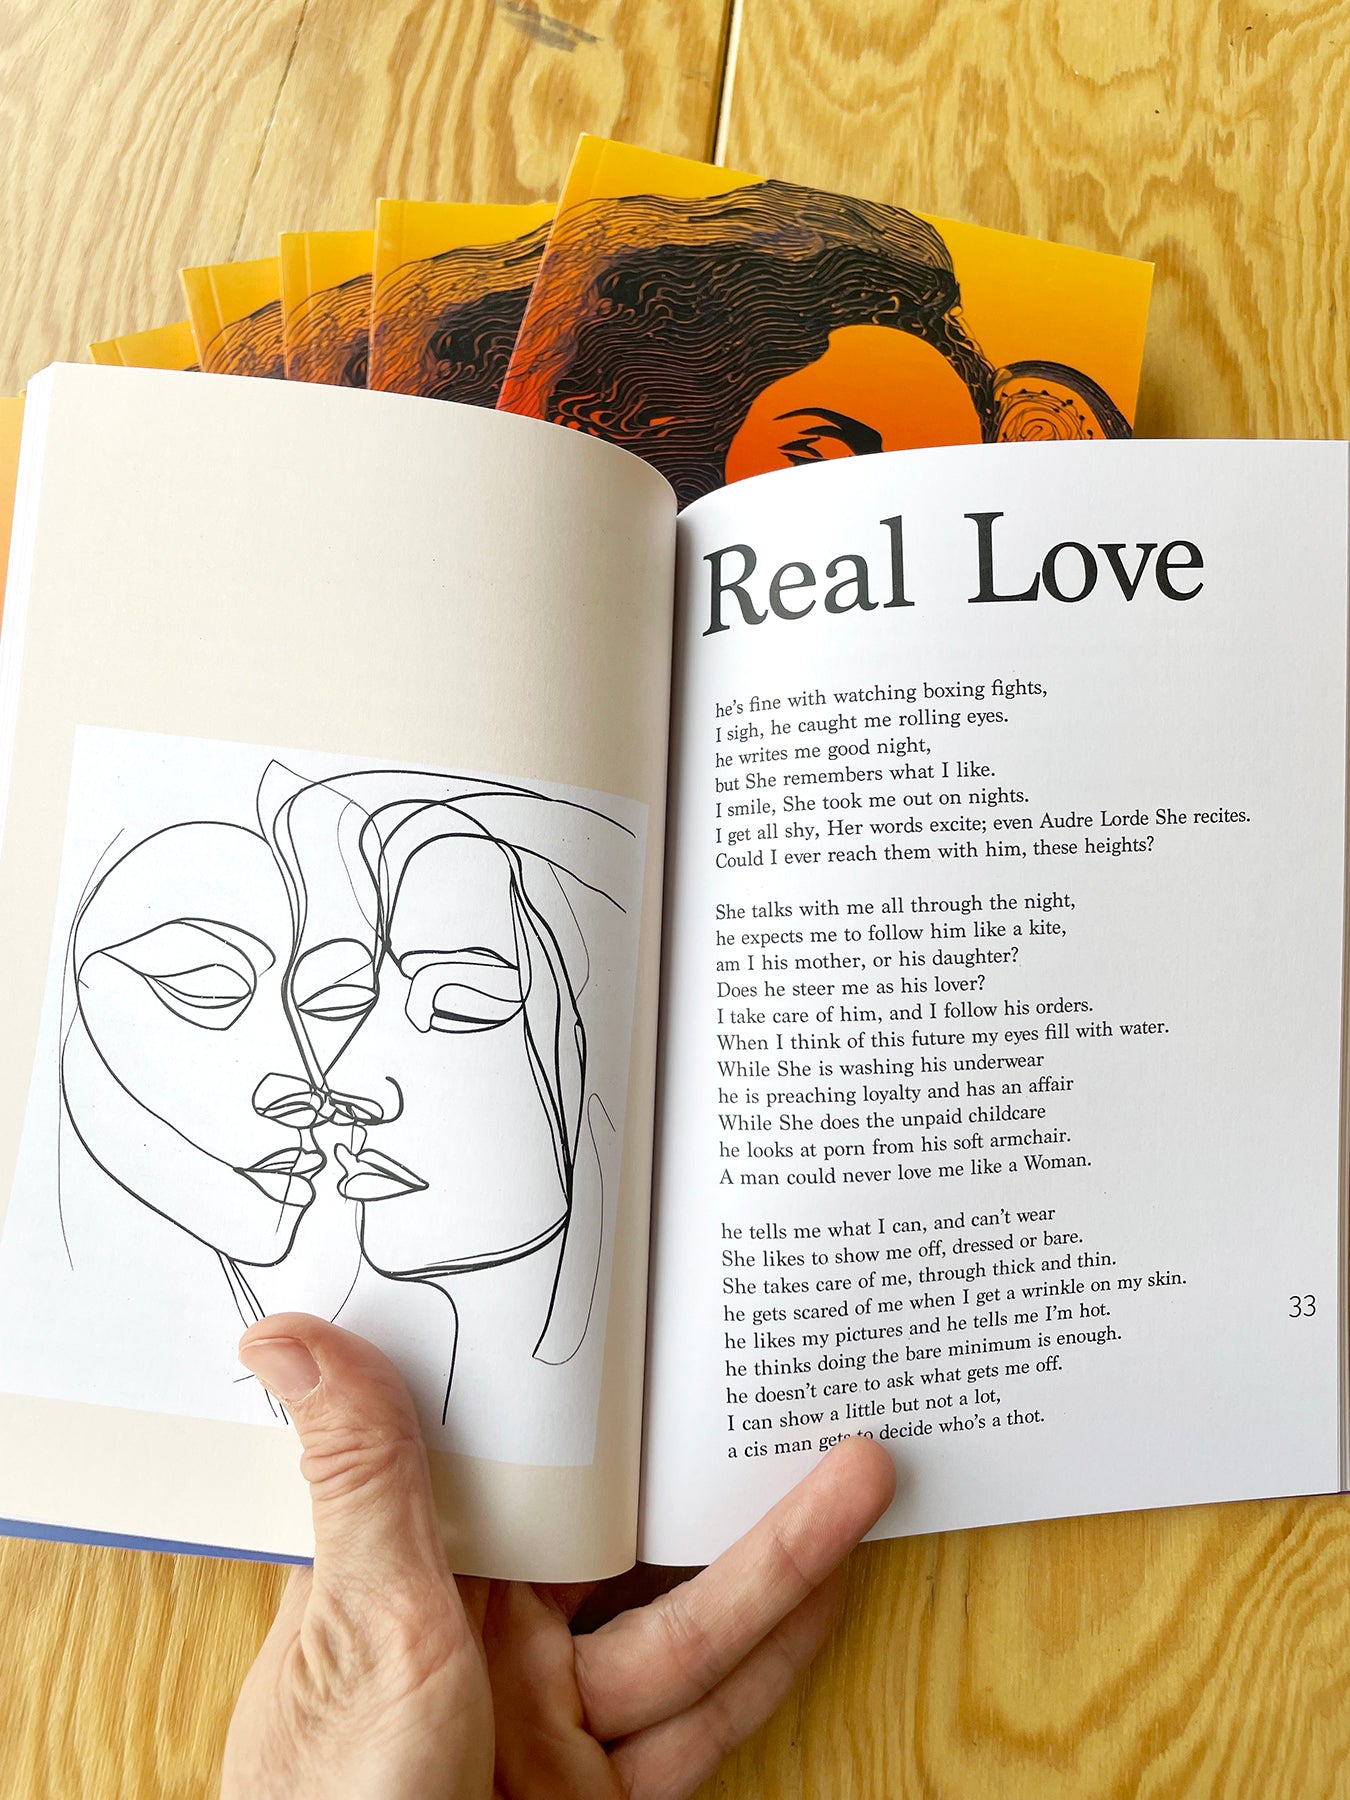 Real Love
he's fine with watching boxing fights,
I sigh, he caught me rolling eyes.
he writes me good night,
but She remembers what I like.
I smile, She took me out on nights.
I get all shy, Her words excite; even Audre Lorde She recites.
Could I ever reach them with him, these heights?
She talks with me all through the night,
he expects me to follow him like a kite,
am I his mother, or his daughter?
Does he steer me as his lover?
I take care of him, and I follow his orders.
When I think of this future my eyes fill with water.
While She is washing his underwear
he is preaching loyalty and has an affair
While She does the unpaid childcare
he looks at porn from his soft armchair.
A man could never love me like a Woman.
he tells me what I can, and can't wear
She likes to show me off, dressed or bare.
She takes care of me, through thick and thin.
he gets scared of me when I get a wrinkle on my skin.
he likes my pictures and he tells me I'm hot.
he thinks doing the bare minimum is enough.
he doesn't care to ask what gets me off.
I can show a little but not a lot,
a cis man gets to decide who's a thot.
33